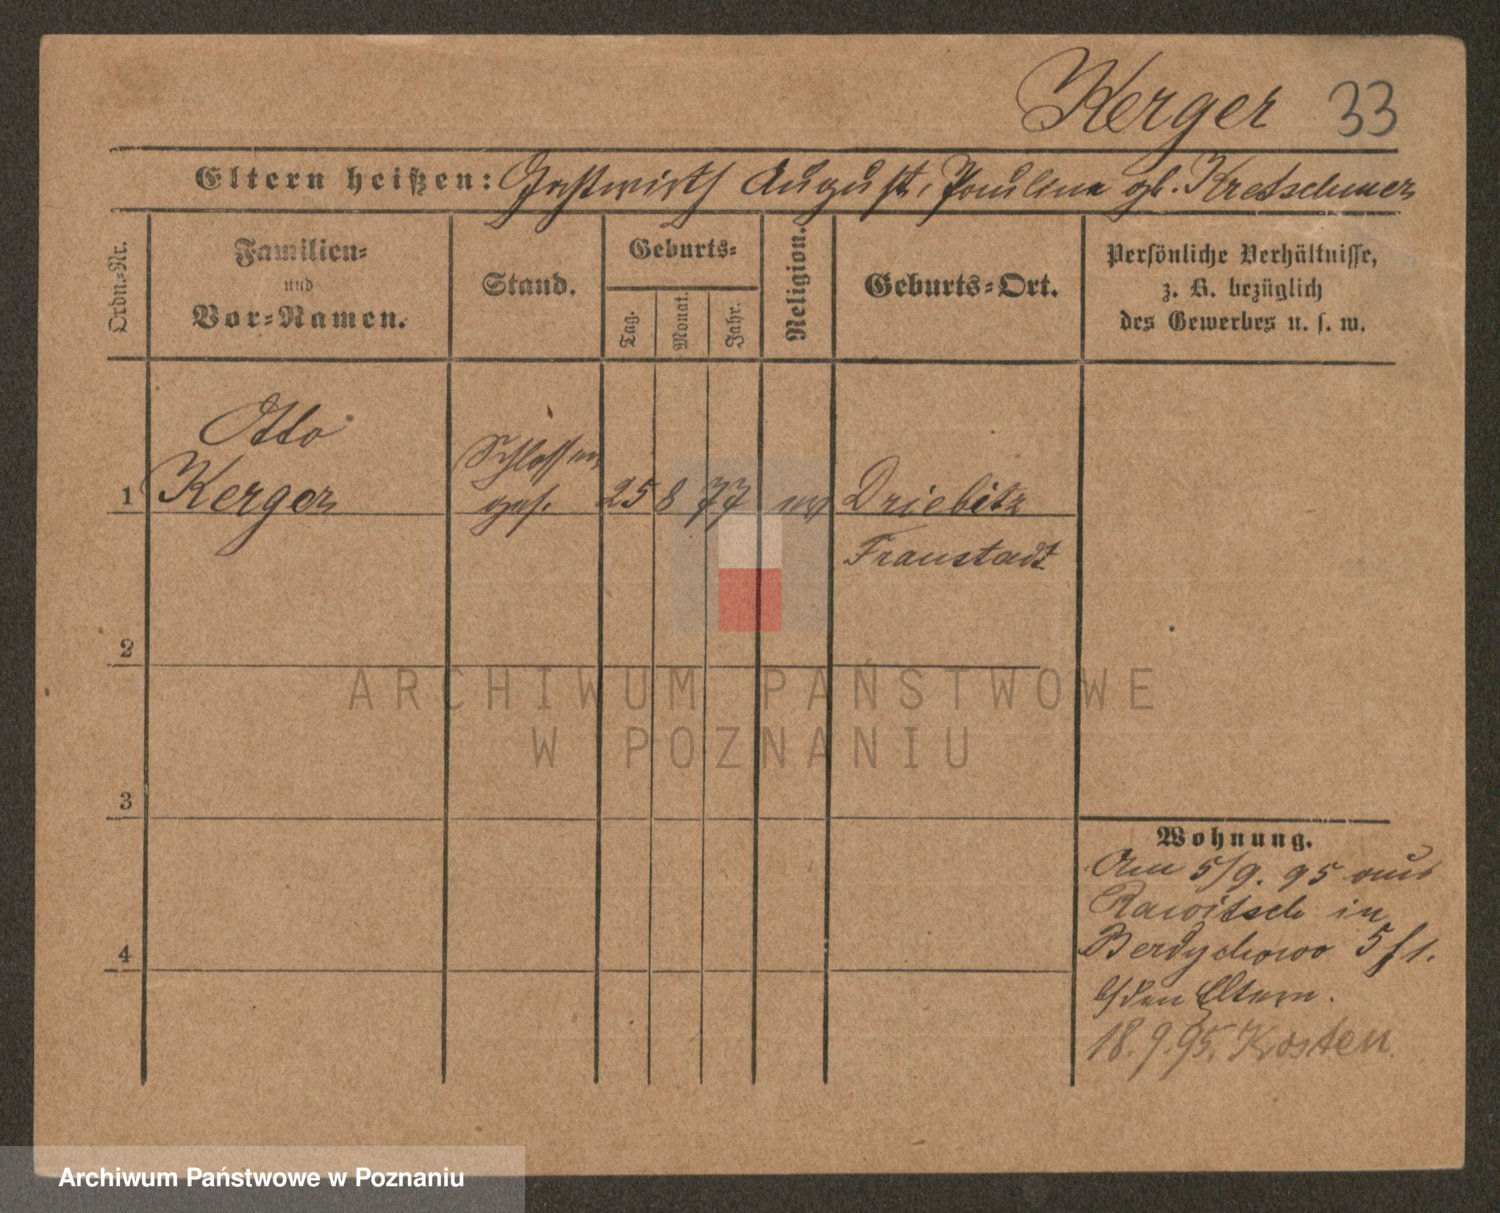 Kerger 33
Eltern heißen: Gastwirth August, Paulina gb. Kretschmer
Ordn.-Nr.
Familien-
und
Vor-Namen.
Stand.
Geburts-
Tag.
Monat.
Jahr.
Religion.
Geburts-Ort.
Persönliche Verhältnisse,
z. B. bezüglich
des Gewerbes u. s. w.
Otto
1 Kerger
Schlosser
ges.
25 8 77 ev
Driebitz
Fraustadt
2
3
4
Wohnung.
Am 5/9. 95 aus
Rawitsch in
Berdychowo 5 f1.
b/den Eltern.
18.9.95. Kosten
ARCHIWUM PAŃSTWOWE
W POZNANIU
Archiwum Państwowe w Poznaniu